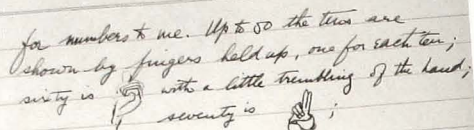 for numbers to me. Up to 50 the tens are
shown by fingers held up, one for each ten;
sixty is with a little trembling of the hand;
seventy is ;